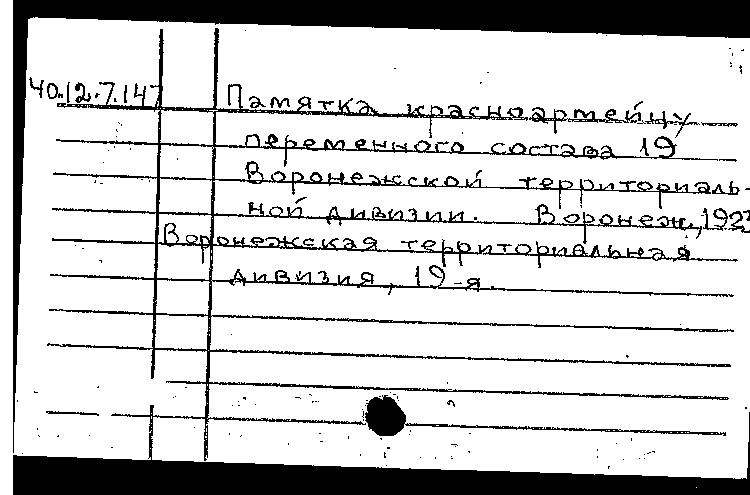 40.12.7.147 Памятка красноармейцу
переменного состава 19
Воронежской территориаль-
ной дивизии. Воронеж, 192
Воронежская территориальная
дивизия, 19-я.